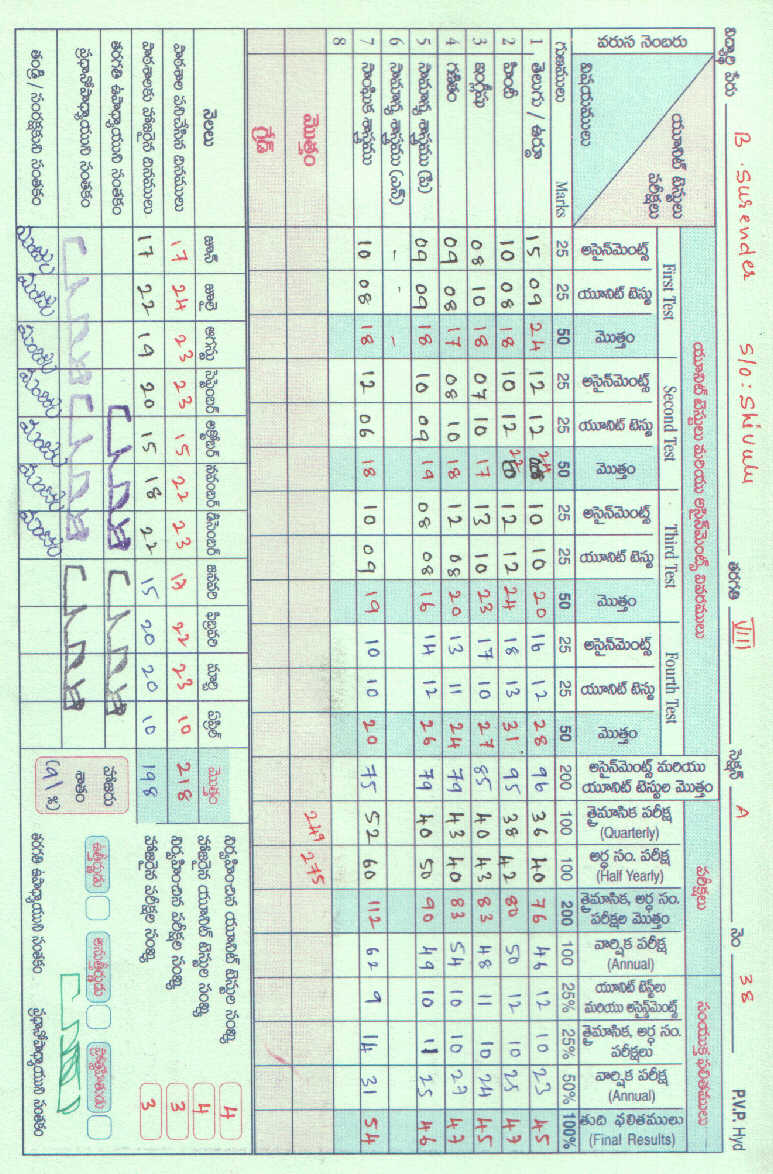 విద్యార్థి పేరు B. Surender S/O: Shivulu తరగతి VIII సెక్షన్ A నెం 38 P.V.P. Hyd
వరుస నెంబరు యూనిట్ టెస్టులు పరీక్షలు విషయములు
యూనిట్ టెస్టులు మరియు అసైన్‌మెంట్స్ వివరములు పరీక్షలు సంయుక్త ఫలితములు
First Test Second Test Third Test Fourth Test
అసైన్‌మెంట్స్ యూనిట్ టెస్టు మొత్తం అసైన్‌మెంట్స్ యూనిట్ టెస్టు మొత్తం అసైన్‌మెంట్స్ యూనిట్ టెస్టు మొత్తం అసైన్‌మెంట్స్ యూనిట్ టెస్టు మొత్తం అసైన్‌మెంట్స్ మరియు యూనిట్ టెస్టుల మొత్తం త్రైమాసిక పరీక్ష (Quarterly) అర్ధ సం. పరీక్ష (Half Yearly) త్రైమాసిక, అర్ధ సం. పరీక్షల మొత్తం వార్షిక పరీక్ష (Annual) యూనిట్ టెస్టులు మరియు అసైన్‌మెంట్స్ త్రైమాసిక, అర్ధ సం. పరీక్షలు వార్షిక పరీక్ష (Annual) తుది ఫలితములు (Final Results)
గుణములు Marks 25 25 50 25 25 50 25 25 50 25 25 50 200 100 100 200 100 25% 25% 50% 100%
1 తెలుగు / ఉర్దూ 15 09 24 12 12 24 10 10 20 16 12 28 96 36 40 76 46 12 10 23 45
2 హిందీ 10 08 18 10 12 22 12 12 24 18 13 31 95 38 42 80 50 12 10 25 47
3 ఇంగ్లీషు 08 10 18 07 10 17 13 10 23 17 10 27 85 40 43 83 48 11 10 24 45
4 గణితం 09 08 17 08 10 18 12 08 20 13 11 24 79 43 40 83 54 10 10 27 47
5 సామాన్య శాస్త్రము (పి) 09 09 18 10 09 19 08 08 16 14 12 26 79 40 50 90 49 10 11 25 46
6 సామాన్య శాస్త్రము (ఎన్) - - -
7 సాంఘిక శాస్త్రము 10 08 18 12 06 18 10 09 19 10 10 20 75 52 60 112 62 9 14 31 54
8
మొత్తం 249 275
గ్రేడ్
నెలలు జూన్ జూలై ఆగస్టు సెప్టెంబర్ అక్టోబర్ నవంబర్ డిసెంబర్ జనవరి ఫిబ్రవరి మార్చి ఏప్రిల్ మొత్తం
పాఠశాల పనిచేసిన దినములు 17 24 23 23 15 22 23 17 22 23 10 218
పాఠశాలకు హాజరైన దినములు 17 22 19 20 15 18 22 15 20 20 10 198
తరగతి ఉపాధ్యాయుని సంతకం
ప్రధానోపాధ్యాయుని సంతకం
తండ్రి / సంరక్షకుని సంతకం
హాజరు శాతం (91%)
నిర్వహించిన యూనిట్ టెస్టుల సంఖ్య 4
హాజరైన యూనిట్ టెస్టుల సంఖ్య 4
నిర్వహించిన పరీక్షల సంఖ్య 3
హాజరైన పరీక్షల సంఖ్య 3
ఉత్తీర్ణుడు అనుత్తీర్ణుడు
తరగతి ఉపాధ్యాయుని సంతకం ప్రధానోపాధ్యాయుని సంతకం